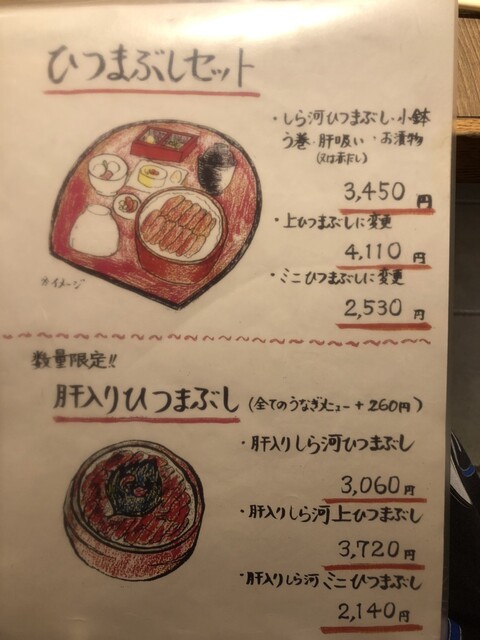 ひつまぶしセット
・しら河ひつまぶし・小鉢
う巻・肝吸い・お漬物
(又は赤だし)
3,450 円
・上ひつまぶしに変更
4,110 円
・ミニひつまぶしに変更
2,530 円
※イメージ
数量限定!!
肝入りひつまぶし (全てのうなぎメニュー + 260円)
・肝入りしら河ひつまぶし
3,060 円
・肝入りしら河上ひつまぶし
3,720 円
・肝入りしら河ミニひつまぶし
2,140 円